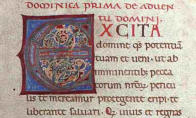 DOMINICA PRIMA DE ADVEN
TU DOMINI
EXCITA
domine qs potentiā
tuam et veni ut ab
imminentibus pecca
torum nrōrū peric
te mereamur protegente eripi te
liberante saluari. Q̄ uiuis et regnas